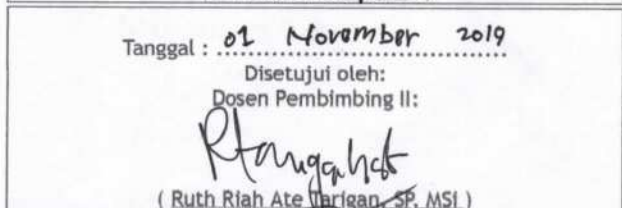 Tanggal : 01 November 2019
Disetujui oleh:
Dosen Pembimbing II:
( Ruth Riah Ate Tarigan, SP, MSi )